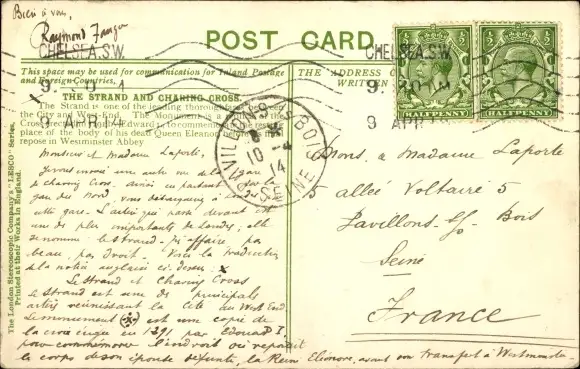 Bien à vous,
Raymond
POST CARD.
CHELSEA.S.W.
CHELSEA.S.W.
9 AP 14
9 APR
This space may be used for communication for Inland Postage
and Foreign Countries.
THE ADDRESS
WRITTEN
HALFPENNY
HALFPENNY
THE STRAND AND CHARING CROSS.
The Strand is one of the leading thoroughfares
the City and West-End. The Monument is a
Cross erected Edward I. to commemorate the resting
place of the body of his dead Queen Eleanor before
repose in Westminster Abbey
PAVILLONS S BOIS
SEINE
10 -4
14
Monsieur et Madame Laporte,
Je vous envoie une autre vue de la gare
de Charing Cross. ainsi en partant de la
gare du Nord vous débarquez à
cette gare. L'artère qui passe devant est
une des plus importantes de Londres, elle
se nomme le Strand. J'y affaire pas
beau, pas droit. Voici la traduction
de la notice anglaise ci-dessus. x
Le Strand et Charing Cross
Le Strand est une des principales
artères réunissant la Cité au West End.
Le monument (x) est une copie de
la croix érigée en 1291 par Edouard I.
pour commémorer l'endroit où reposait
le corps de son épouse défunte, la Reine Eléonore, avant son transfert à Westminster
Mons. & Madame Laporte
5 allée Voltaire 5
Pavillons s/s Bois
Seine
France
The London Stereoscopic Company's "LESCO" Series.
Printed at their Works in England.